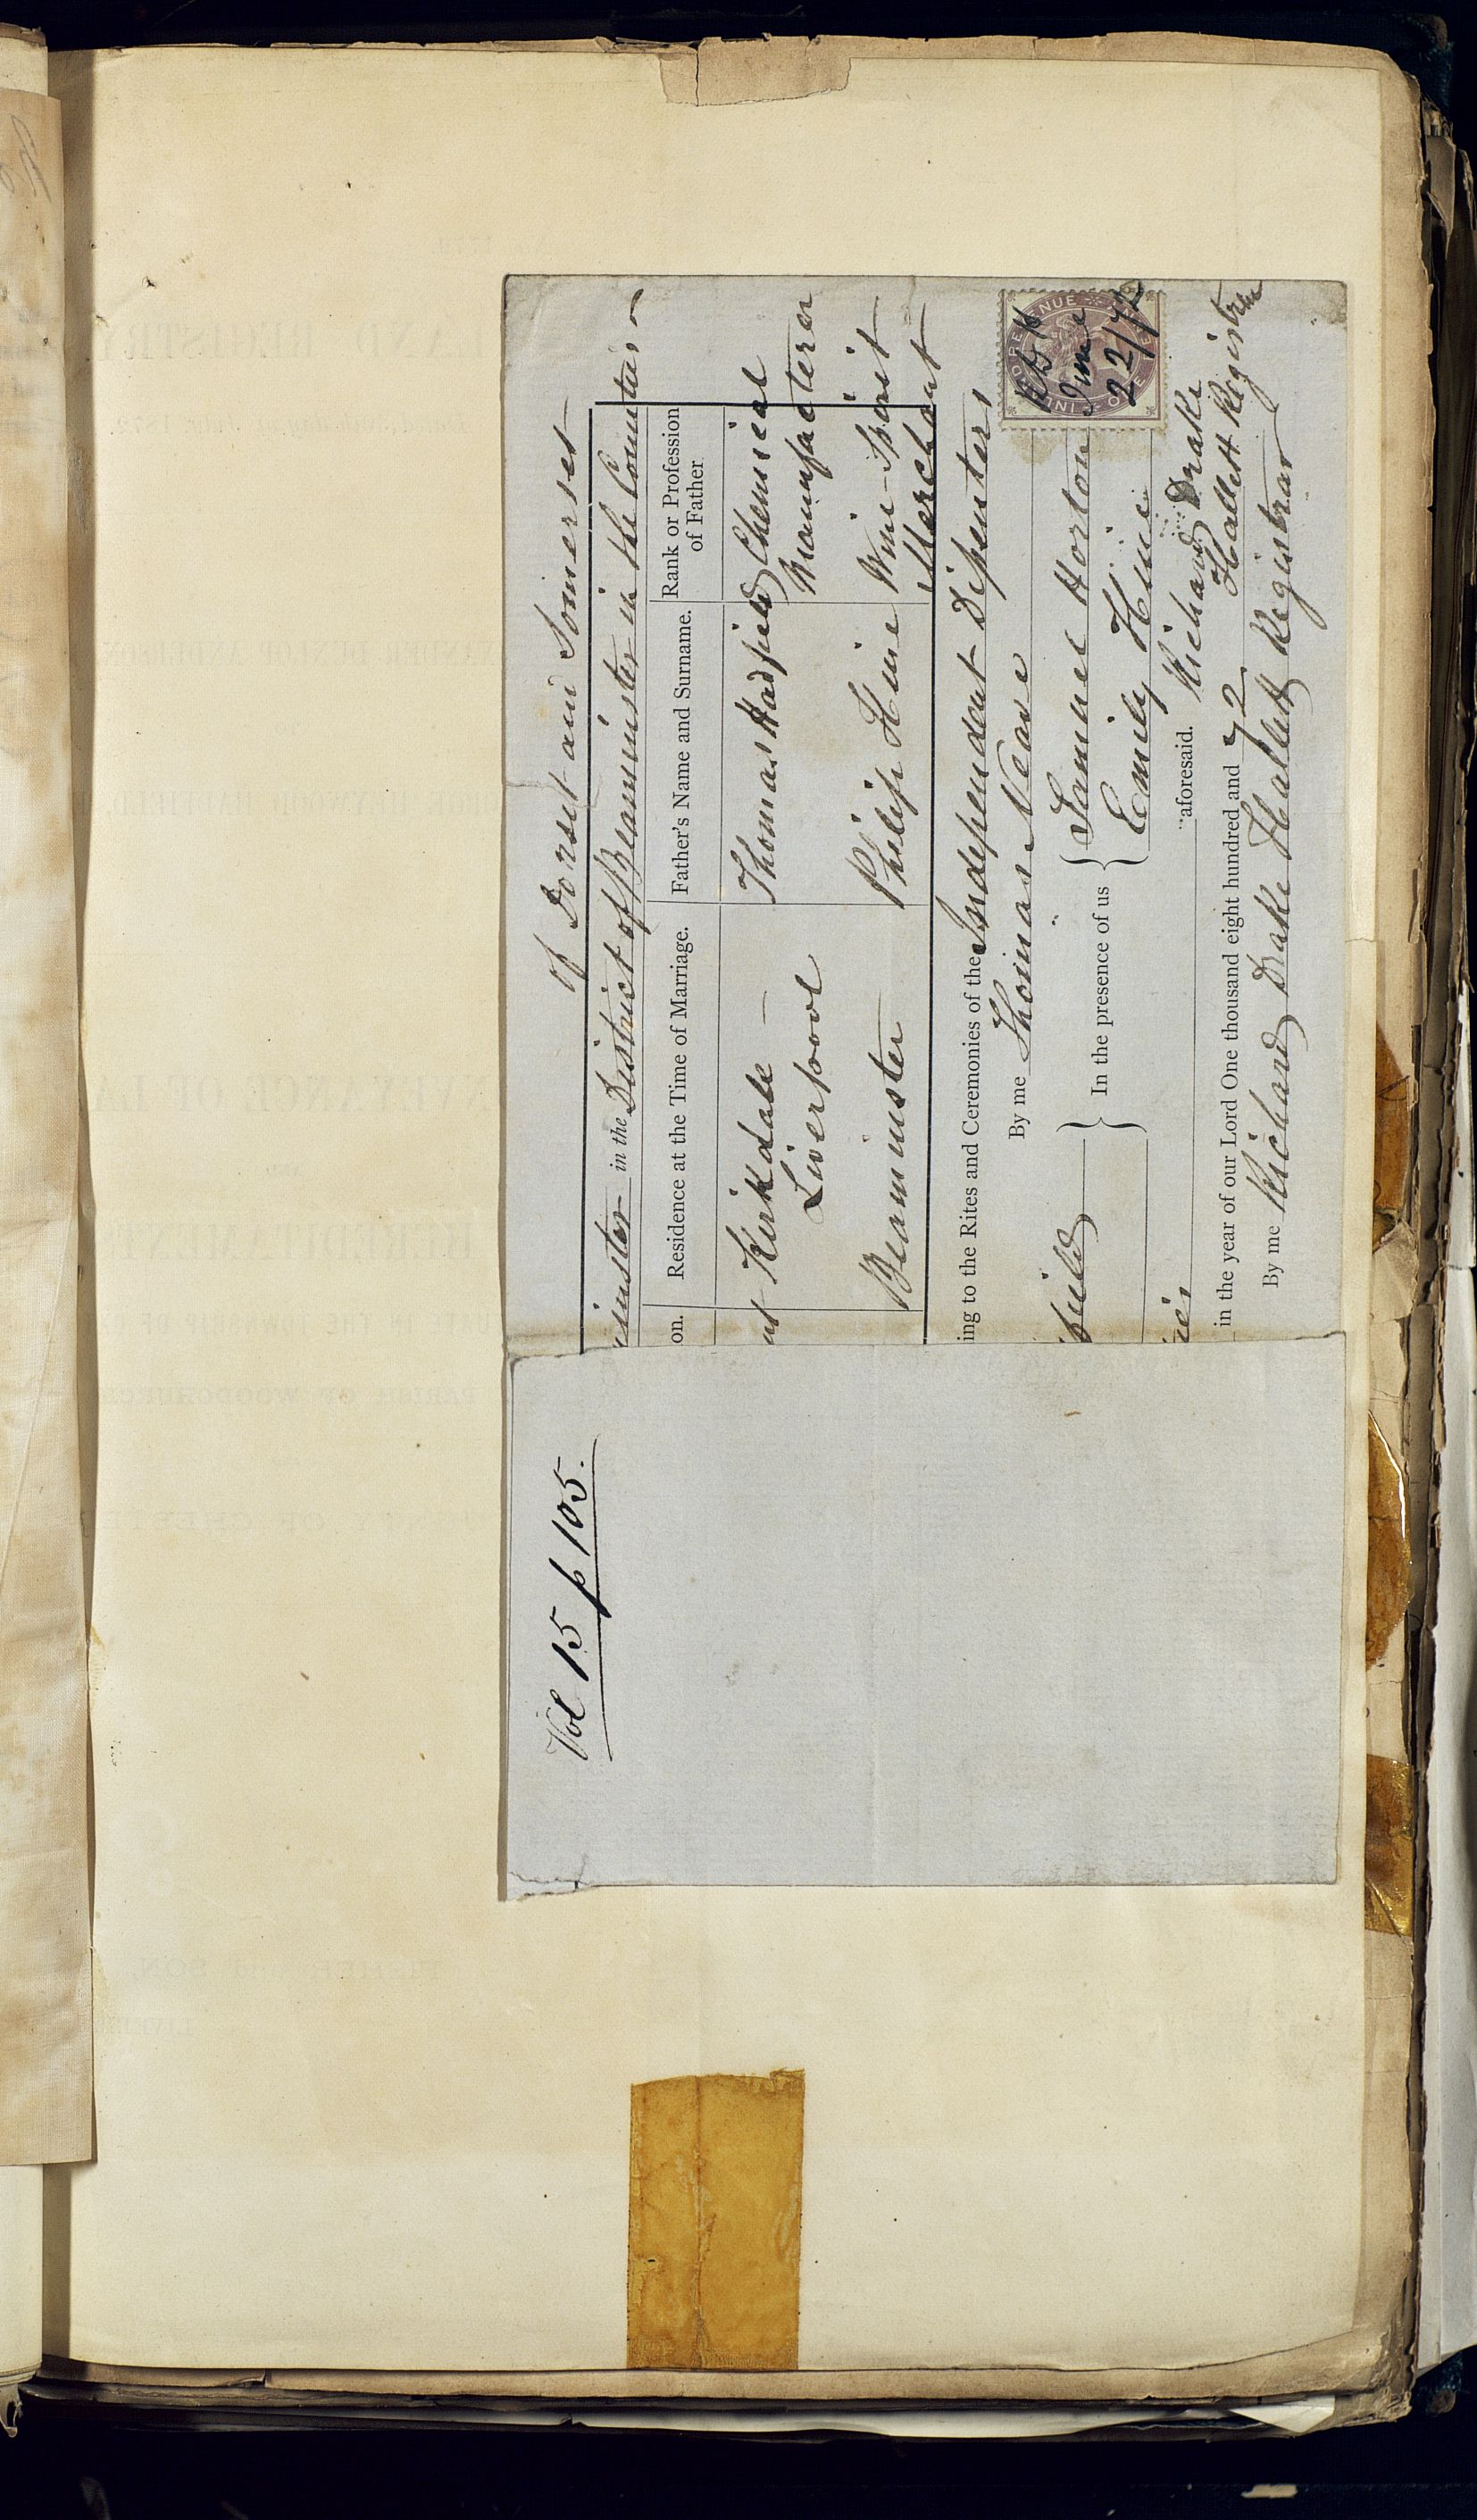 of Dorset and Somerset
inster in the District of Beaminster in the Counties
on. Residence at the Time of Marriage. Father's Name and Surname. Rank or Profession of Father
Kirkdale — Thomas Hadfield Chemical
Liverpool Manufacterer
Beaminster Philip Hine Wine - Spirit
Merchant
ing to the Rites and Ceremonies of the Independent Disenters
By me Thomas Neave
field In the presence of us Samuel Horton
Emily Hine
aforesaid. Richard Drake
Hallett Registrar
in the year of our Lord One thousand eight hundred and 72
By me Richard Drake Hallett Registrar
INLAND REVENUE
ONE PENNY
RDH
June
22/72
Vol 15 p 105.